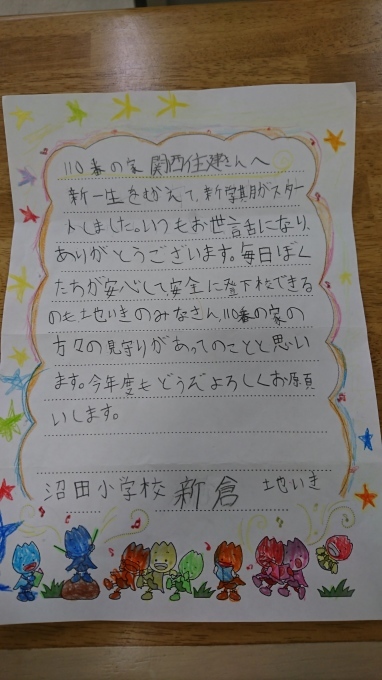 110番の家 関西住建さんへ
新一生をむかえて、新学期がスター
トしました。いつもお世話になり、
ありがとうございます。毎日ぼく
たちが安心して、安全に登下校できる
のも地いきのみなさん、110番の家の
方々の見守りがあってのことと思い
ます。今年度もどうぞよろしくお願
いします。
沼田小学校 新倉 地いき